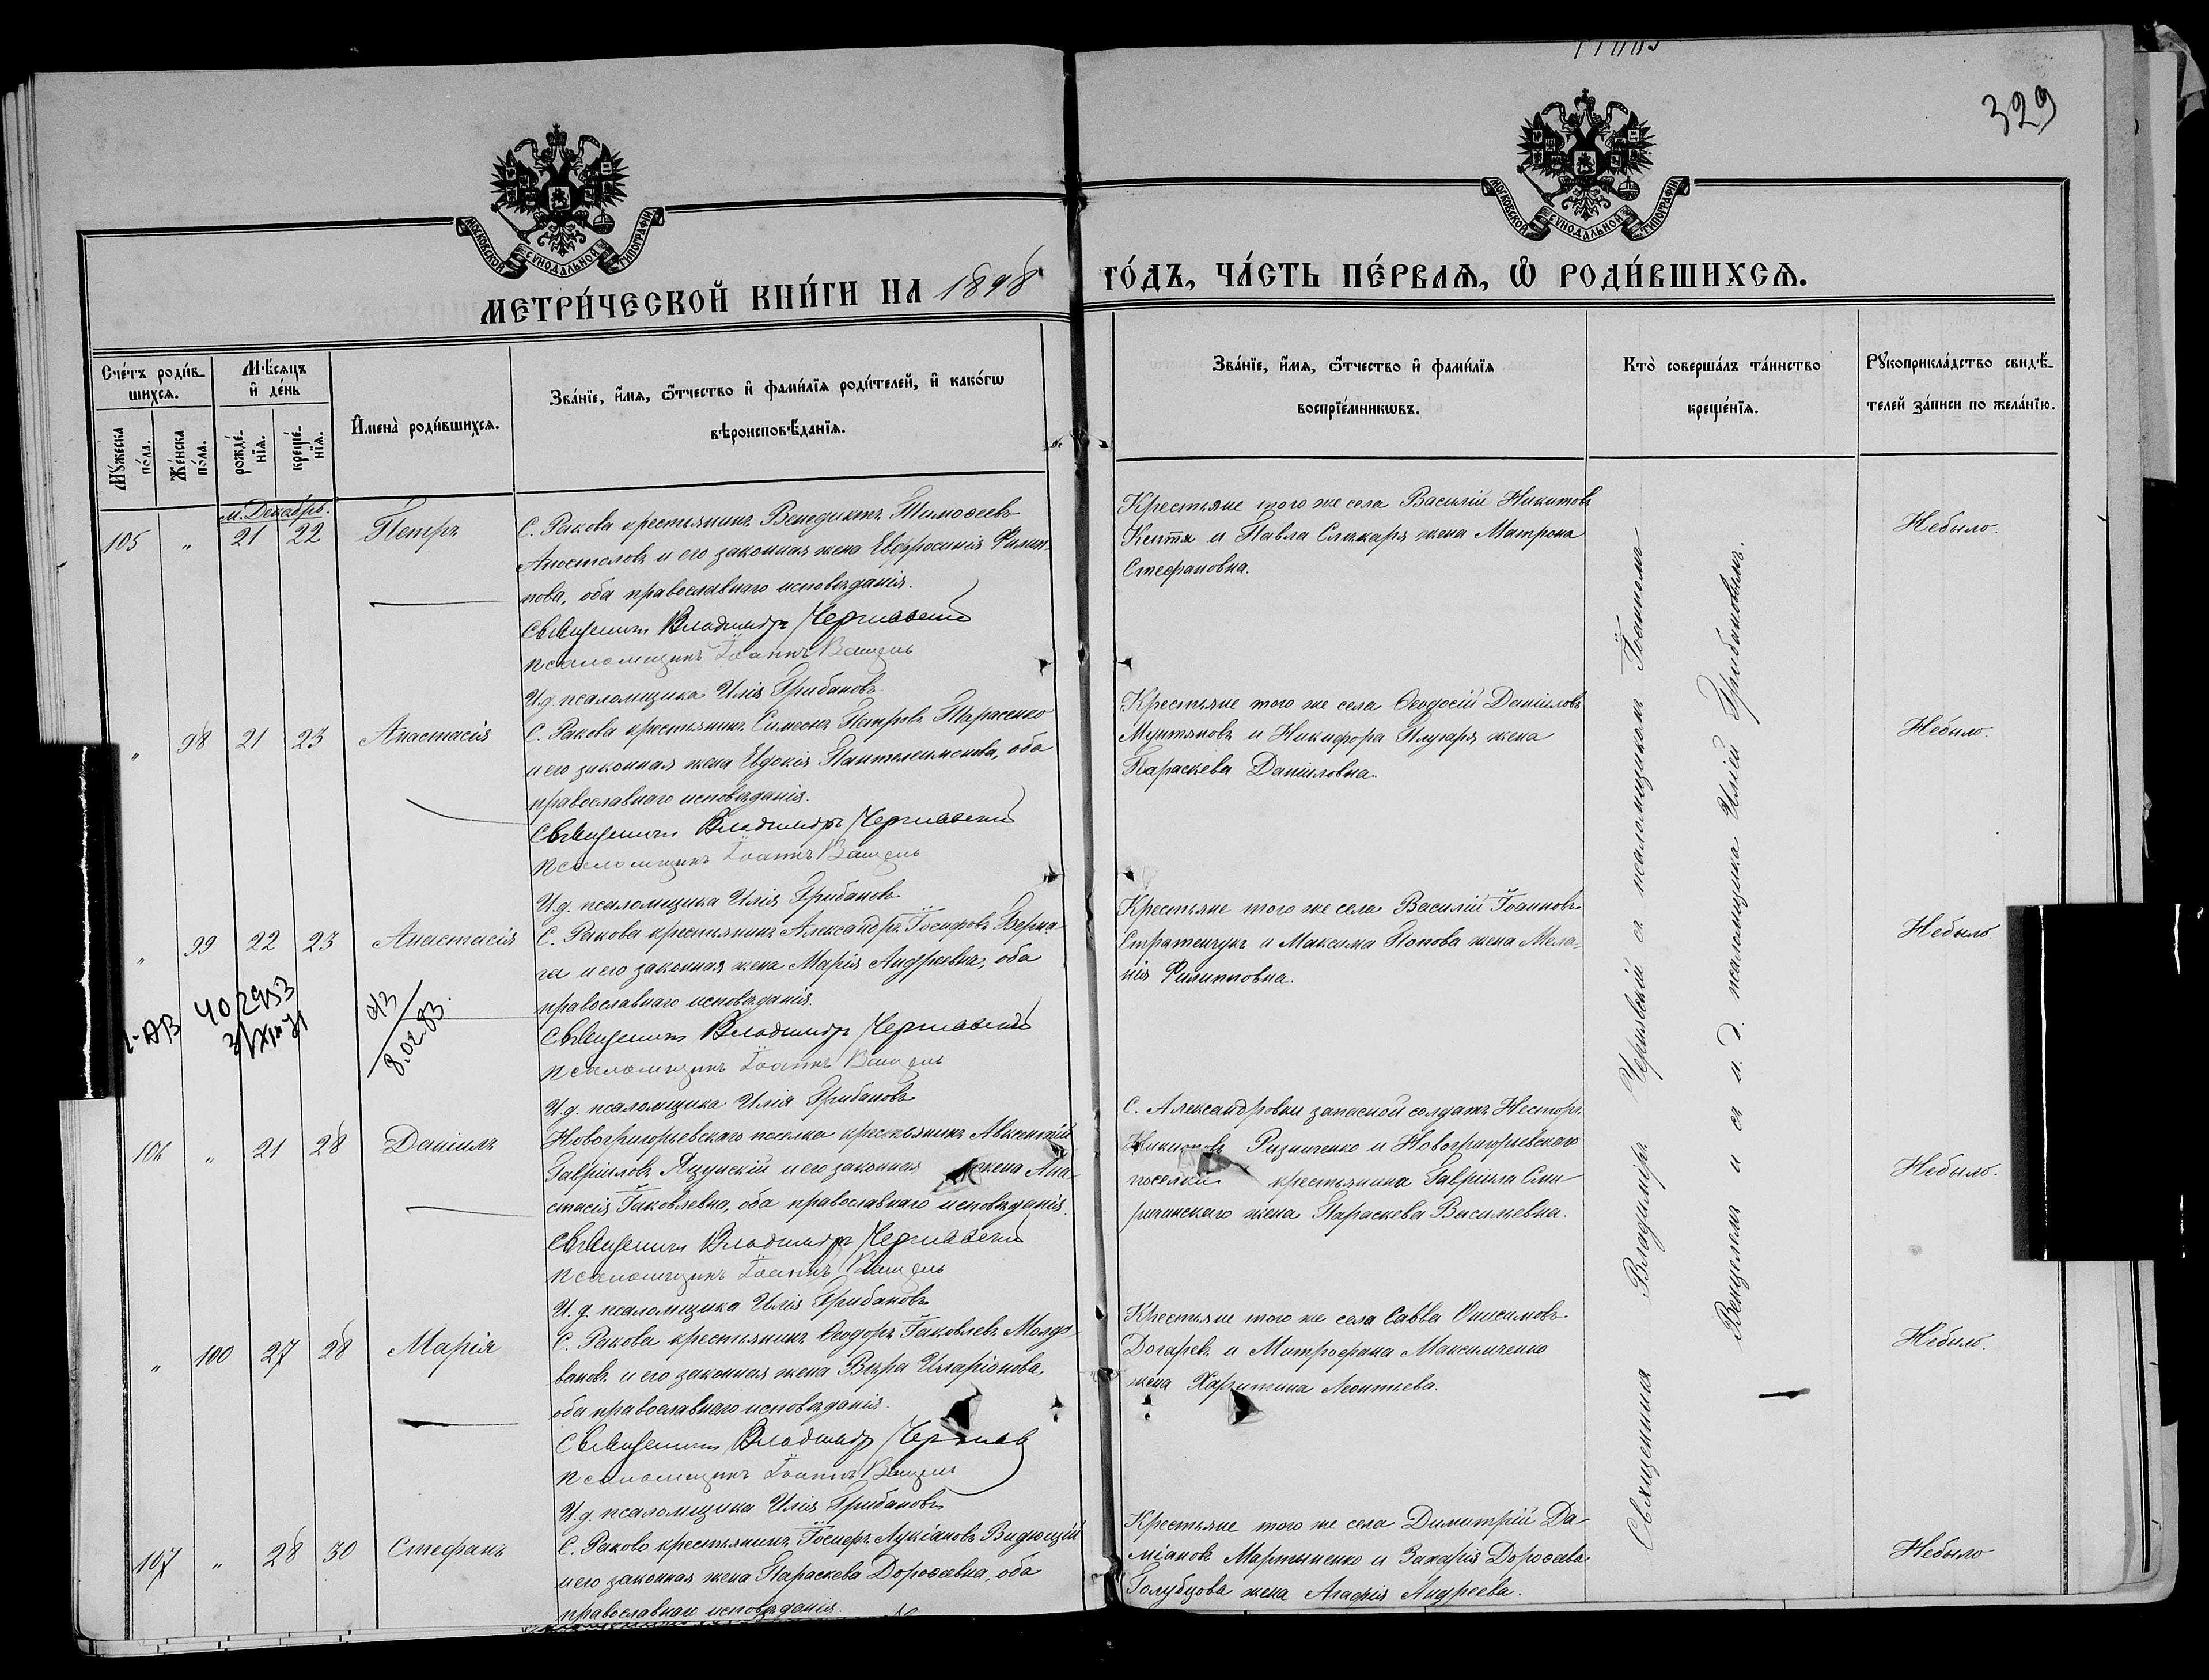 329
МОСКОВСКОЙ СУНОДАЛЬНОЙ ТИПОГРАФІИ
МОСКОВСКОЙ СУНОДАЛЬНОЙ ТИПОГРАФІИ
МЕТРИ́ЧЕСКОЙ КНИ́ГИ НА 1898 ГО́ДЪ, ЧА́СТЬ ПЕ́РВАѦ, Ѡ҆ РОДИ́ВШИХСѦ.
Сче́тъ роди́в-
шихсѧ.
Мꙋ́жеска
по́ла.
Же́нска
по́ла.
Мѣ́сѧцъ
и҆ де́нь
рожде́-
нїѧ.
креще́-
нїѧ.
И҆мена̀ роди́вшихсѧ.
Зва́нїе, и҆́мѧ, ѻ҆́тчество и҆ фами́лїѧ роди́телей, и҆ како́гѡ
вѣроисповѣ́данїѧ.
Зва́нїе, и҆́мѧ, ѻ҆́тчество и҆ фами́лїѧ
воспрїе́мникѡвъ.
Кто̀ соверша́лъ та́инство
креще́нїѧ.
Рꙋкоприкла́дство свидѣ́-
телей за́писи по жела́нїю.
м. Декабрь.
105 " 21 22 Петръ
С. Ракова крестьянинъ Венедиктъ Тимофеевъ
Апостоловъ и его законная жена Евфросинія Филип-
пова, оба православнаго исповѣданія.
Священникъ Владимиръ Чернявскій
Псаломщикъ Іоаннъ
И.д. псаломщика Илія Грибановъ
Крестьяне того же села Василій Никитовъ
Кептя и Павла Слюсаря жена Матрона
Стефановна.
Небыло.
" 98 21 23 Анастасія
С. Ракова крестьянинъ Симеонъ Петровъ Тарасенко
и его законная жена Евдокія Пантелеимонова, оба
православнаго исповѣданія.
Священникъ Владимиръ Чернявскій
Псаломщикъ Іоаннъ
И.д. псаломщика Илія Грибановъ
Крестьяне того же села Ѳеодосій Даніиловъ
Мунтяновъ и Никифора Плугаря жена
Параскева Даніиловна.
Небыло.
" 99 22 23 Анастасія
С. Ракова крестьянинъ Александръ Іосифовъ Верна-
га и его законная жена Марія Андреевна, оба
православнаго исповѣданія.
Священникъ Владимиръ Чернявскій
Псаломщикъ Іоаннъ
И.д. псаломщика Илія Грибановъ
Крестьяне того же села Василій Іоанновъ
Стратенчукъ и Максима Попова жена Мела-
нія Филипповна.
Небыло
I-АВ 402953
8.02.83.
106 " 21 28 Даніилъ
Новогригорьевскаго поселка крестьянинъ Авксентій
Гавріиловъ Яцунскій и его законная жена Ана-
стасія Іаковлевна, оба православнаго исповѣданія.
Священникъ Владимиръ Чернявскій
Псаломщикъ Іоаннъ
И. д. псаломщика Илія Грибановъ
С. Александровки запасной солдатъ Несторъ
Никитовъ Ризниченко и Новогригорьевскаго
поселка крестьянина Гавріила Сми-
ричинскаго жена Параскева Васильевна.
Небыло.
" 100 27 28 Марія
С. Ракова крестьянинъ Ѳеодоръ Іаковлевъ Молдо-
вановъ и его законная жена Вѣра Иларіонова,
оба православнаго исповѣданія.
Священникъ Владимиръ Черняв
Псаломщикъ Іоаннъ
И.д. псаломщика Илія Грибановъ
Крестьяне того же села Савва Онисимовъ
Догаревъ и Митрофана Максимченко
жена Харитина Леонтьева.
Небыло.
107 " 28 30 Стефанъ
С. Раково крестьянинъ Іосифъ Лукіановъ Видющій
и его законная жена Параскева Дороѳевна, оба
православнаго исповѣданія.
Крестьяне того же села Димитрій Да-
міановъ Мартыненко и Захарія Дороѳева
Голубцова жена Агафія Андреева.
Небыло
Священникъ Владиміръ Чернявскій съ псаломщикомъ Іоанномъ
и съ и. д. псаломщика Иліей Грибановымъ.